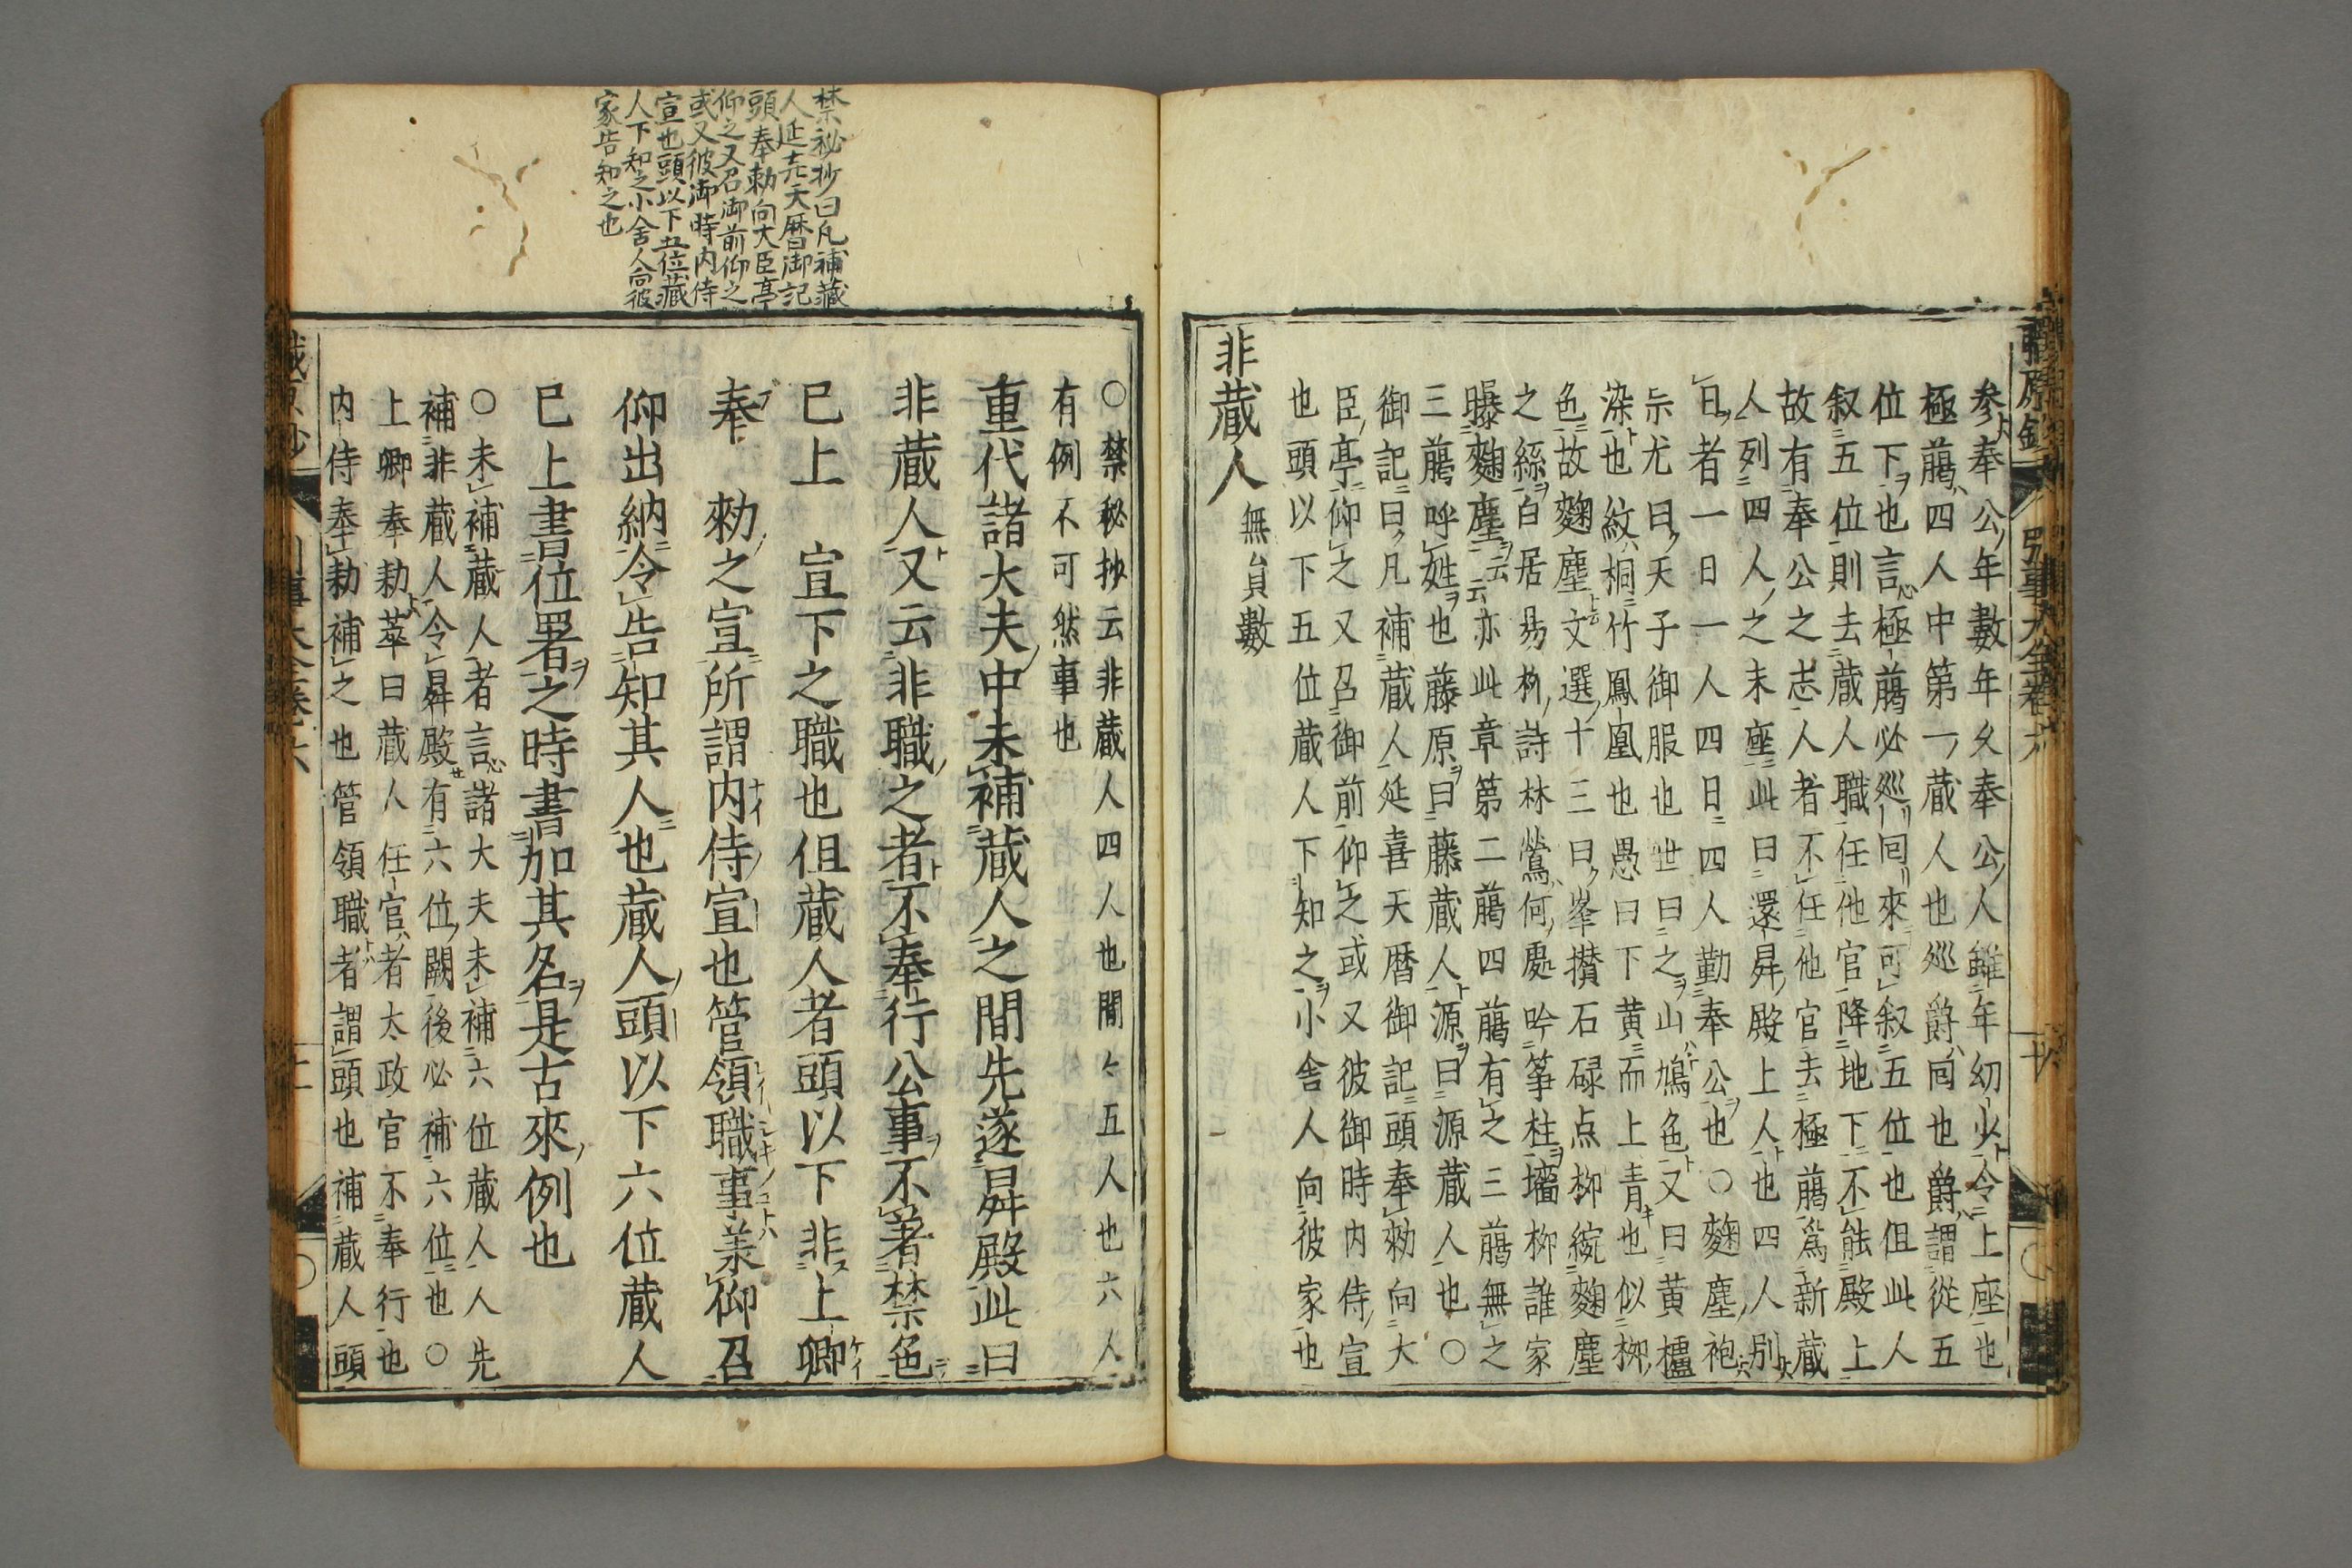 参奉公年數年久奉公人雖年幼少令上座也
極﨟四人中第一蔵人也巡爵回也爵謂從五
位下也言極﨟必巡回來可叙五位也但此人
叙五位則去蔵人職任他官降地下不能殿上
故有奉公之志人者不任他官去極﨟為新蔵
人列四人之末座此曰還昇殿上人也四人別
日者一日一人四日四人勤奉公也○麴塵袍
示尤曰天子御服也世曰之山鳩色又曰黄櫨
染也紋桐竹鳳凰也愚曰下黄而上青也似柳
色故麴塵文選十三曰峯攅石碌点柳綻麴塵
之絲白居易柳詩林鶯何處吟筝柱墻柳誰家
曝麴塵云云亦此章第二﨟四﨟有之三﨟無之
三﨟呼姓也藤原曰藤蔵人源曰源蔵人也○
御記曰凡補蔵人延喜天暦御記頭奉勅向大
臣亭仰之又召御前仰之或又彼御時内侍宣
也頭以下五位蔵人下知之小舎人向彼家也
非蔵人 無員數
禁秘抄曰凡補蔵
人延㐂天暦御記
頭奉勅向大臣亭
仰之又召御前仰之
或又彼御時内侍
宣也頭以下五位蔵
人下知之小舎人向彼
家告知之也
○禁秘抄云非蔵人四人也間々五人也六人
有例不可然事也
重代諸大夫中未補蔵人之間先遂昇殿此曰
非蔵人又云非職之者不奉行公事不著禁色
已上宣下之職也但蔵人者頭以下非上卿
奉勅之宣所謂内侍宣也管領職事羕仰召
仰出納令告知其人也蔵人頭以下六位蔵人
已上書位署之時書加其名是古來例也
○未補蔵人者言諸大夫未補六位蔵人人先
補非蔵人令昇殿有六位闕後必補六位也○
上卿奉勅萃曰蔵人任官者太政官不奉行也
内侍奉勅補之也管領職者謂頭也補蔵人頭